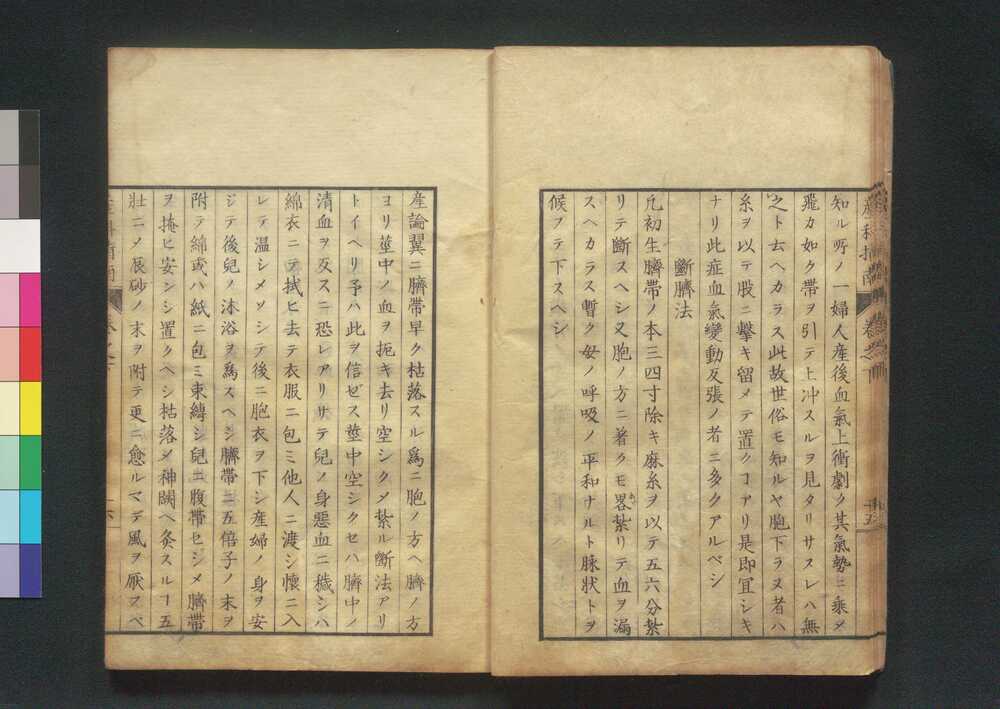 産科指南 巻之 十五
知ル所ノ一婦人産後血氣上衝劇ク其氣勢ニ乗メ
飛カ如ク帶ヲ引テ上冲スルヲ見タリサスレハ無
之ト云ヘカラス此故世俗モ知ルヤ胞下ラヌ者ハ
糸ヲ以テ股ニ撃キ留メテ置クヿアリ是即冝シキ
ナリ此症血氣變動反張ノ者ニ多クアルベシ
斷臍法
凢初生臍帶ノ本三四寸除キ麻糸ヲ以テ五六分紮
リテ斷スヘシ又胞ノ方ニ著クモ畧紮リテ血ヲ漏
スヘカラス暫ク母ノ呼吸ノ平和ナルト脉狀トヲ
候フテ下スヘシ
産論翼ニ臍帶早ク枯落スル爲ニ胞ノ方ヘ臍ノ方
ヨリ莖中ノ血ヲ扼キ去リ空シクメ紮ル斷法アリ
トイヘリ予ハ此ヲ信ゼス莖中空シクセハ臍中ノ
清血ヲ反スニ恐レアリサテ兒ノ身惡血ニ穢シハ
綿衣ニテ拭ヒ去テ衣服ニ包ミ他人ニ渡シ懷ニ入
レテ温シメソシテ後ニ胞衣ヲ下シ産婦ノ身ヲ安
シテ後兒ノ沐浴ヲ爲スヘシ臍帶ニ五倍子ノ末ヲ
附テ綿或ハ紙ニ包ミ束縛シ兒ニ腹帶セシメ臍帶
ヲ掩ヒ安ンシ置クヘシ枯落メ神闕ヘ灸スルー五
壮ニメ辰砂ノ末ヲ附テ更ニ愈ルマデ風ヲ厭フベ
十六